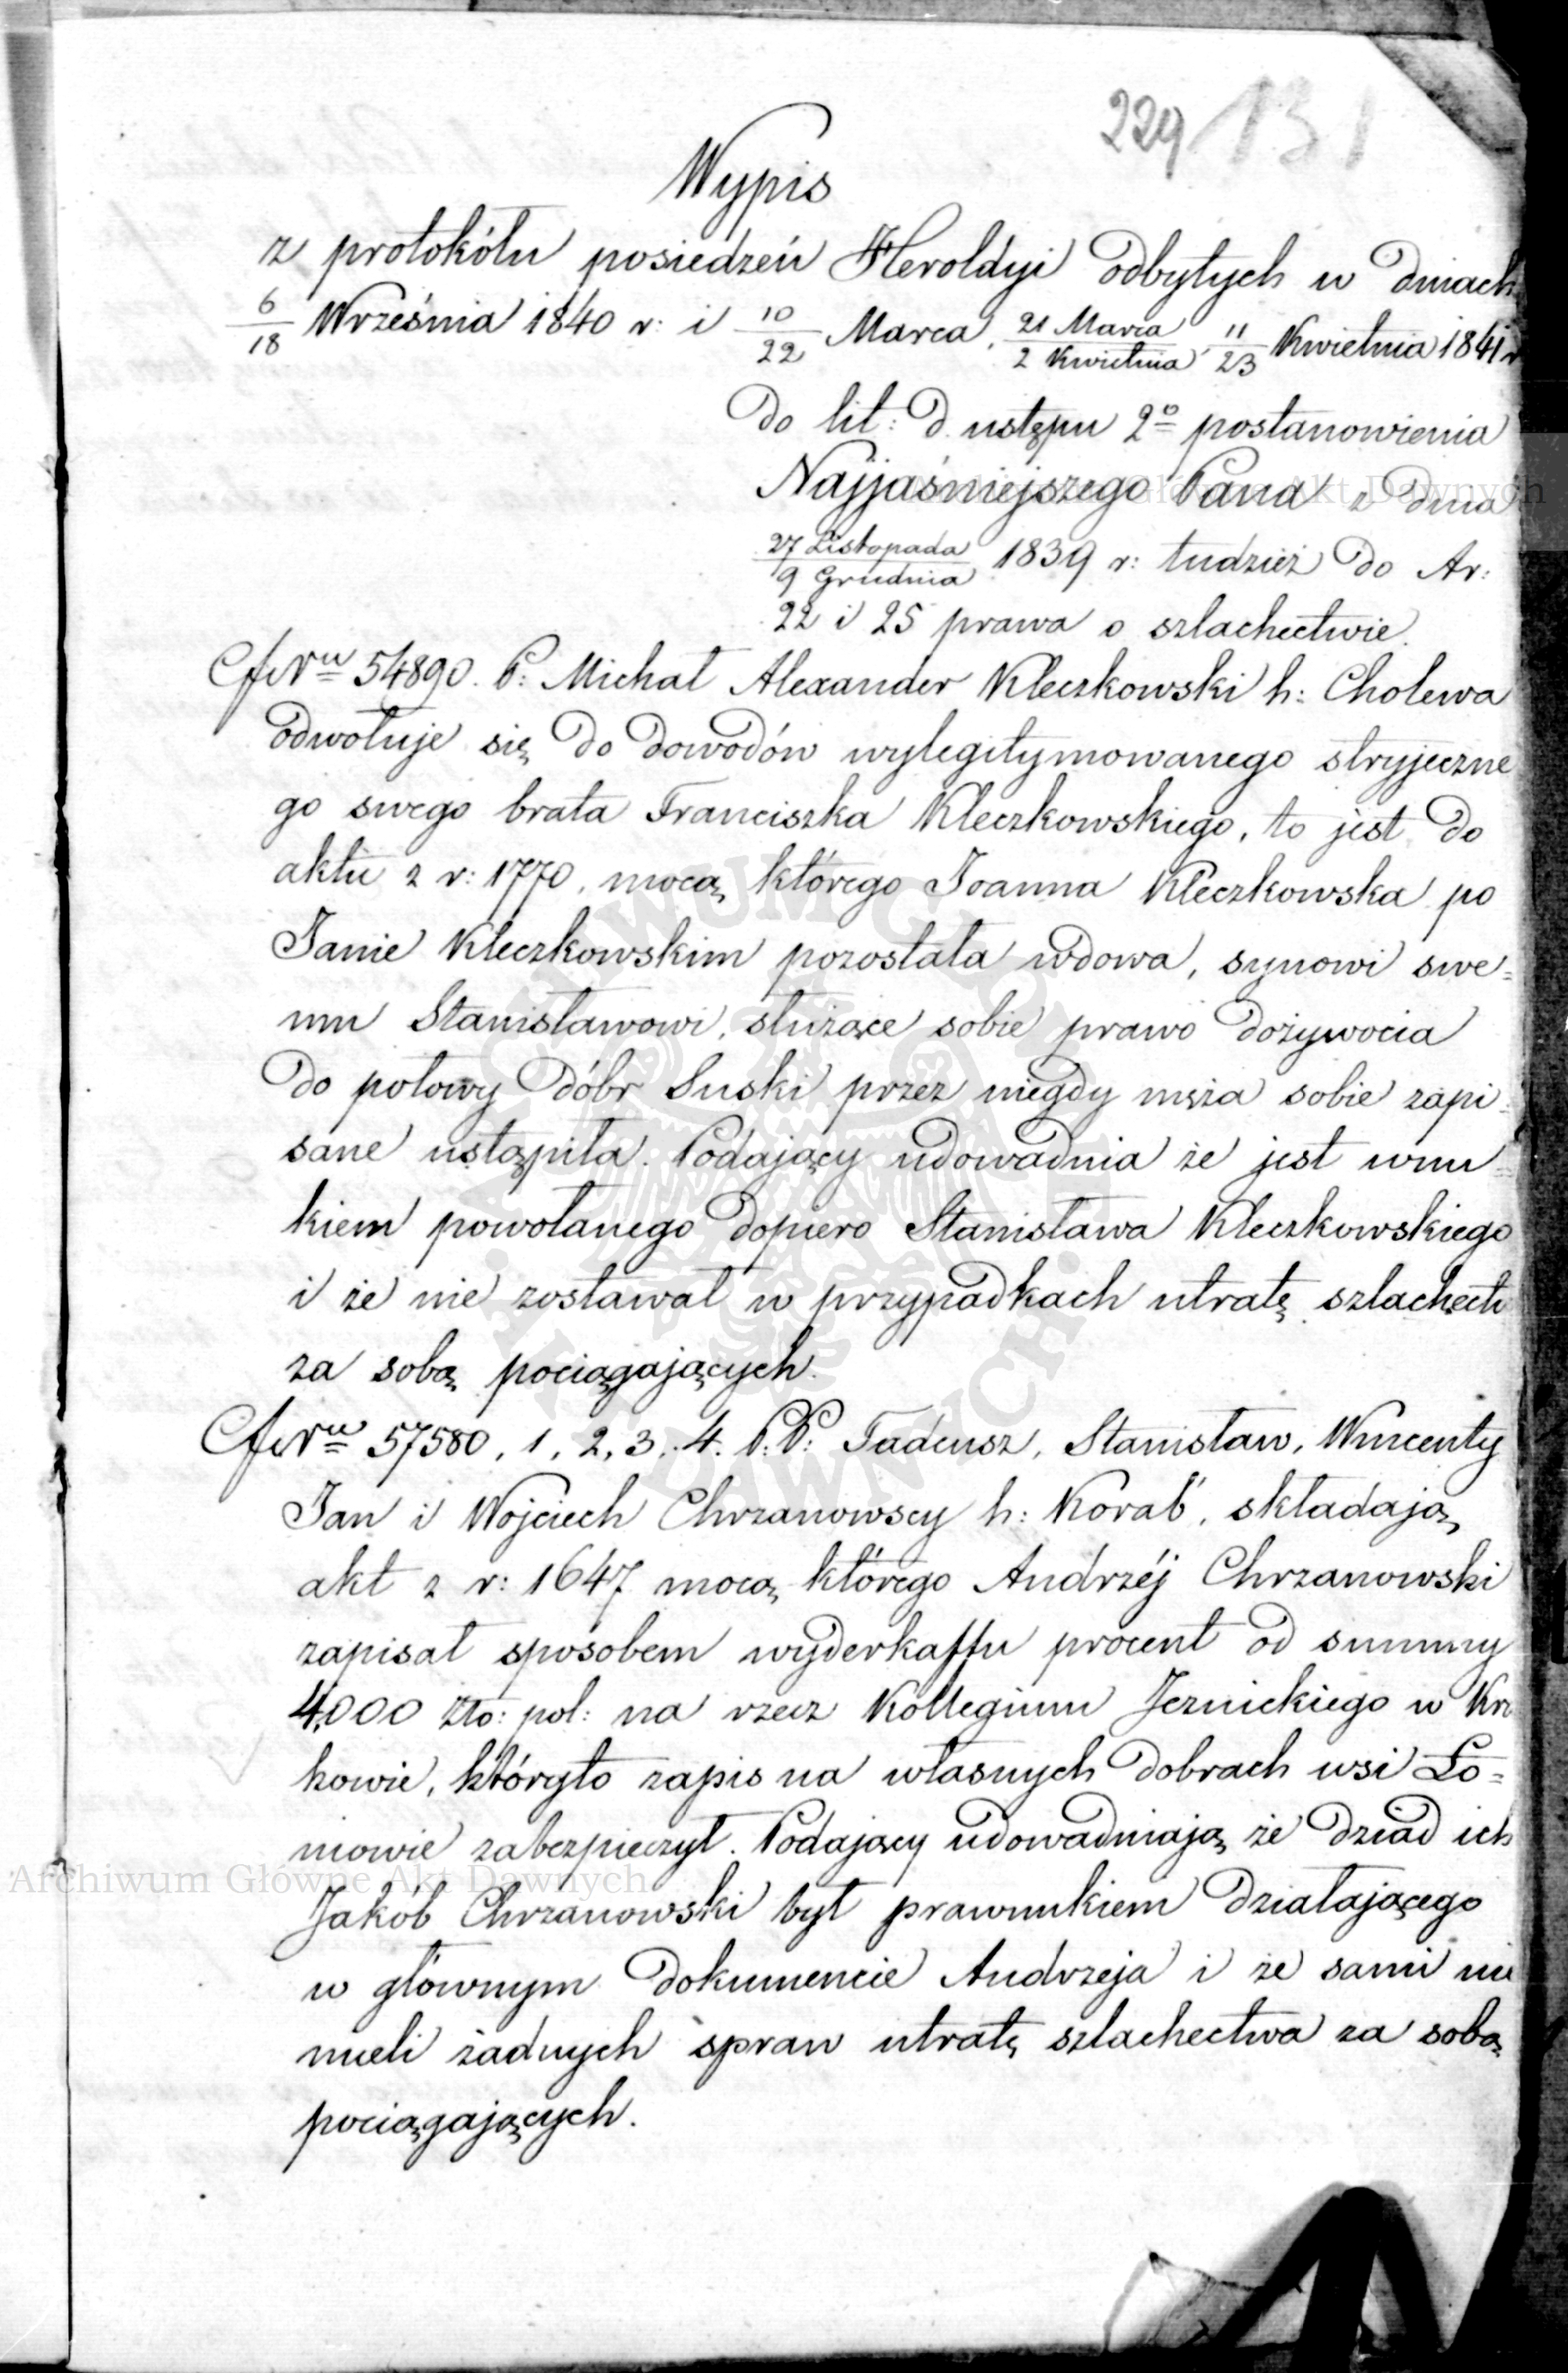 229 131
Wypis
z protokółu posiedzeń Heroldyi odbytych w dniach
6/18 Września 1840 r: i 10/22 Marca, 21 Marca/2 Kwietnia, 11/23 Kwietnia 1841 r
do lit: d. ustępu 2º postanowienia
Najjaśniejszego Pana z dnia
27 Listopada/9 Grudnia 1839 r: tudzież do Ar:
22 i 25 prawa o szlachectwie.
54890. P: Michał Alexander Kleczkowski h: Cholewa
odwołuje się do dowodów wylegitymowanego stryjeczne
go swego brata Franciszka Kleczkowskiego, to jest do
aktu z r: 1770, mocą którego Joanna Kleczkowska po
Janie Kleczkowskim pozostała wdowa, synowi swe=
mu Stanisławowi, służące sobie prawo dożywocia
do połowy dóbr Suski przez niegdy męża sobie zapi=
sane ustąpiła. Podający udowadnia że jest wnu=
kiem powołanego dopiero Stanisława Kleczkowskiego
i że nie zostawał w przypadkach utratę szlachect
za sobą pociągających.
57580, 1, 2, 3, 4. P.P: Tadeusz, Stanisław, Wincenty
Jan i Wojciech Chrzanowscy h: Korab', składają
akt z r: 1647 mocą którego Andrzéj Chrzanowski
zapisał sposobem wyderkaffu procent od summy
4,000 złło: pol: na rzecz Kollegium Jezuickiego w Kra
kowie, któryto zapis na własnych dobrach wsi Ło=
niowie zabezpieczył. Podający udowadniają że dziad ich
Jakób Chrzanowski był prawnukiem działającego
w głównym dokumencie Andrzeja i że sami nie
mieli żadnych spraw utratę szlachectwa za sobą
pociągających.
Archiwum Główne Akt Dawnych